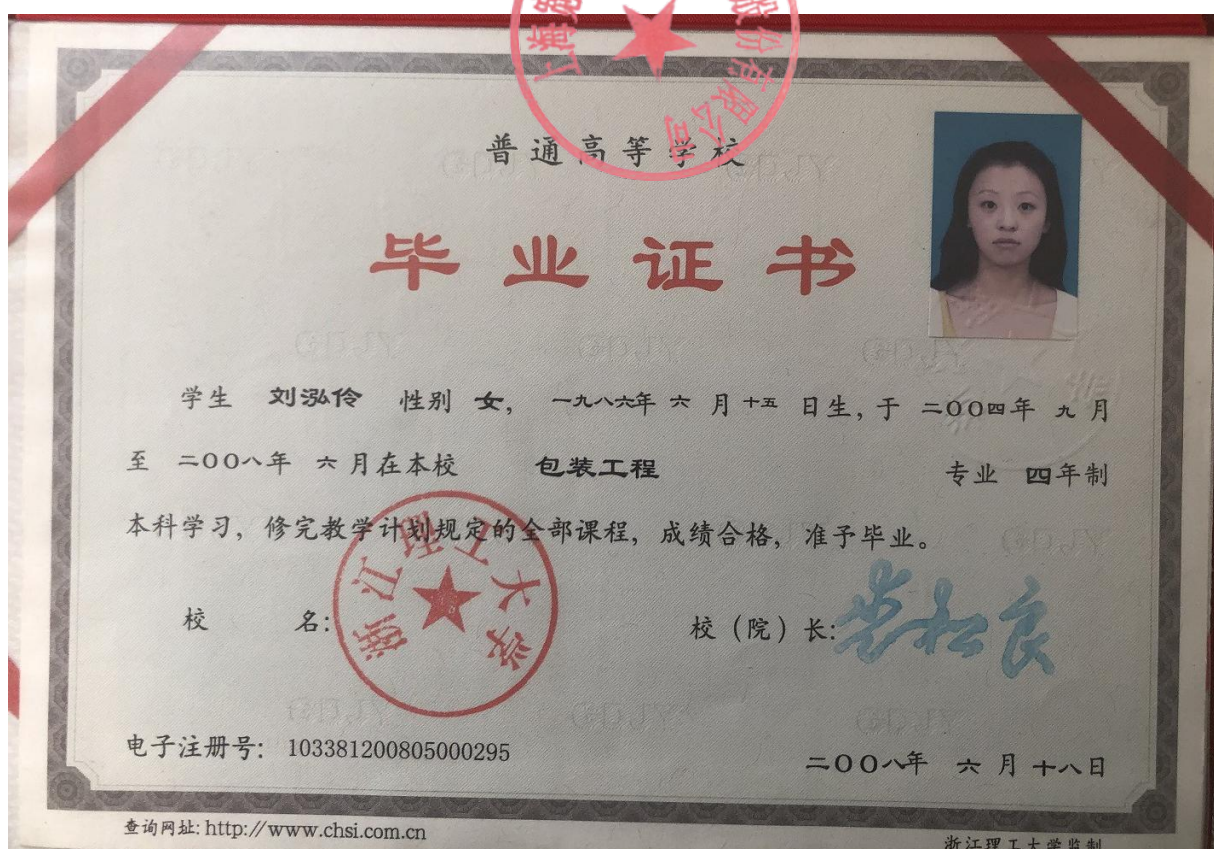 上海 股份有限公司
普通高等学校
毕业证书
学生 刘泓伶 性别 女, 一九八六年 六 月 十五 日生,于 二〇〇四年 九 月
至 二〇〇八年 六 月在本校 包装工程 专业 四年制
本科学习,修完教学计划规定的全部课程,成绩合格,准予毕业。
浙江理工大学
校 名: 校(院)长:
电子注册号: 103381200805000295
二〇〇八年 六 月 十八日
查询网址: http://www.chsi.com.cn
浙江理工大学监制